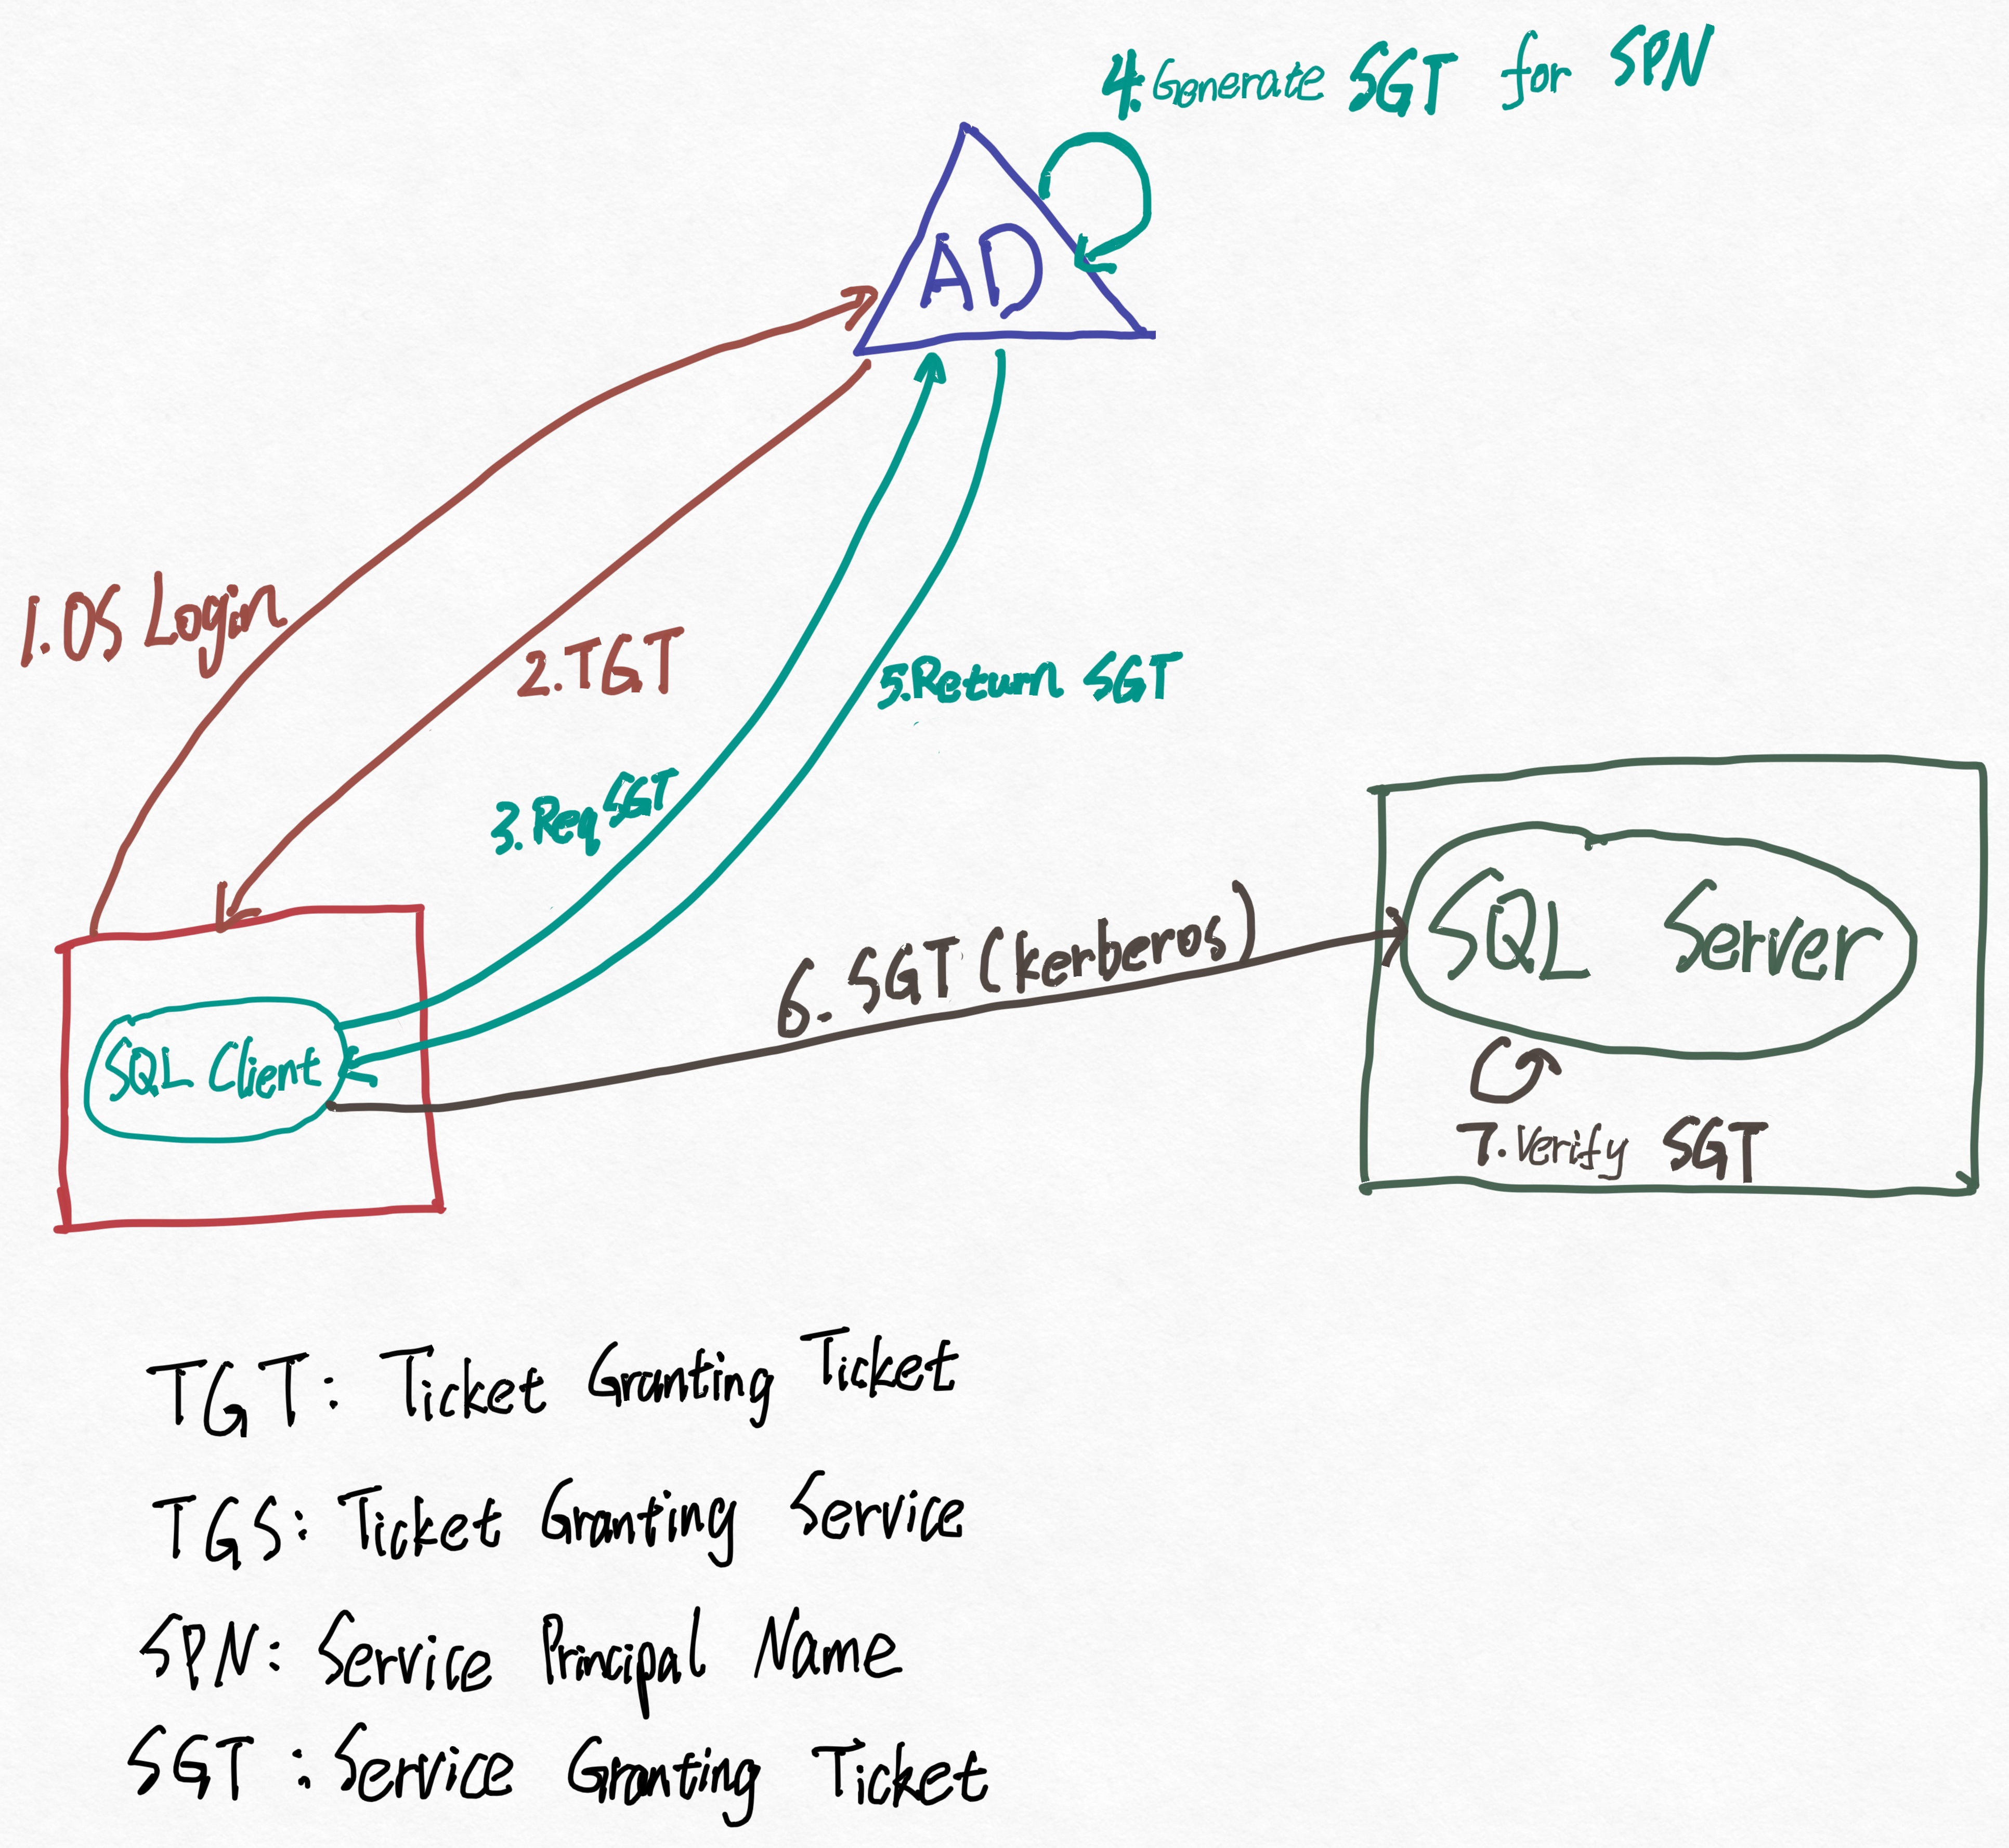 4. Generate SGT for SPN
AD
1. OS Login
2. TGT
5. Return SGT
3. Req SGT
6. SGT (kerberos)
SQL Server
SQL Client
7. Verify SGT
TGT: Ticket Granting Ticket
TGS: Ticket Granting Service
SPN: Service Principal Name
SGT: Service Granting Ticket